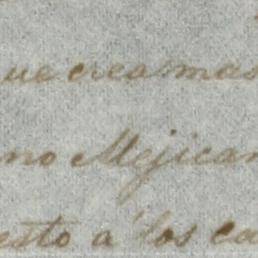 que crea mas
no Mejican
esto a los ca